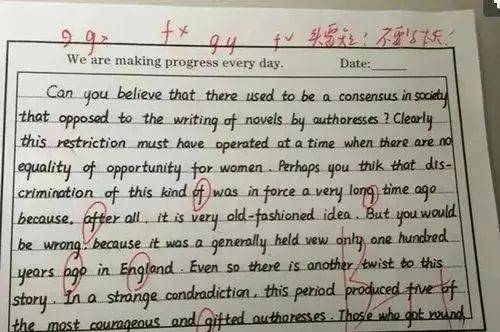 g g× f× g y f✓ 头要短！不要写太长！
We are making progress every day. Date:
Can you believe that there used to be a consensus in society
that opposed to the writing of novels by authoresses ? Clearly
this restriction must have operated at a time when there are no
equality of opportunity for women . Perhaps you thik that dis-
crimination of this kind of was in force a very long time ago
because, after all , it is very old-fashioned idea . But you would
be wrong, because it was a generally held vew only one hundred
years ago in England . Even so there is another twist to this
story . In a strange condradiction , this period produced five of
the most courageous and gifted authoresses . Those who got round